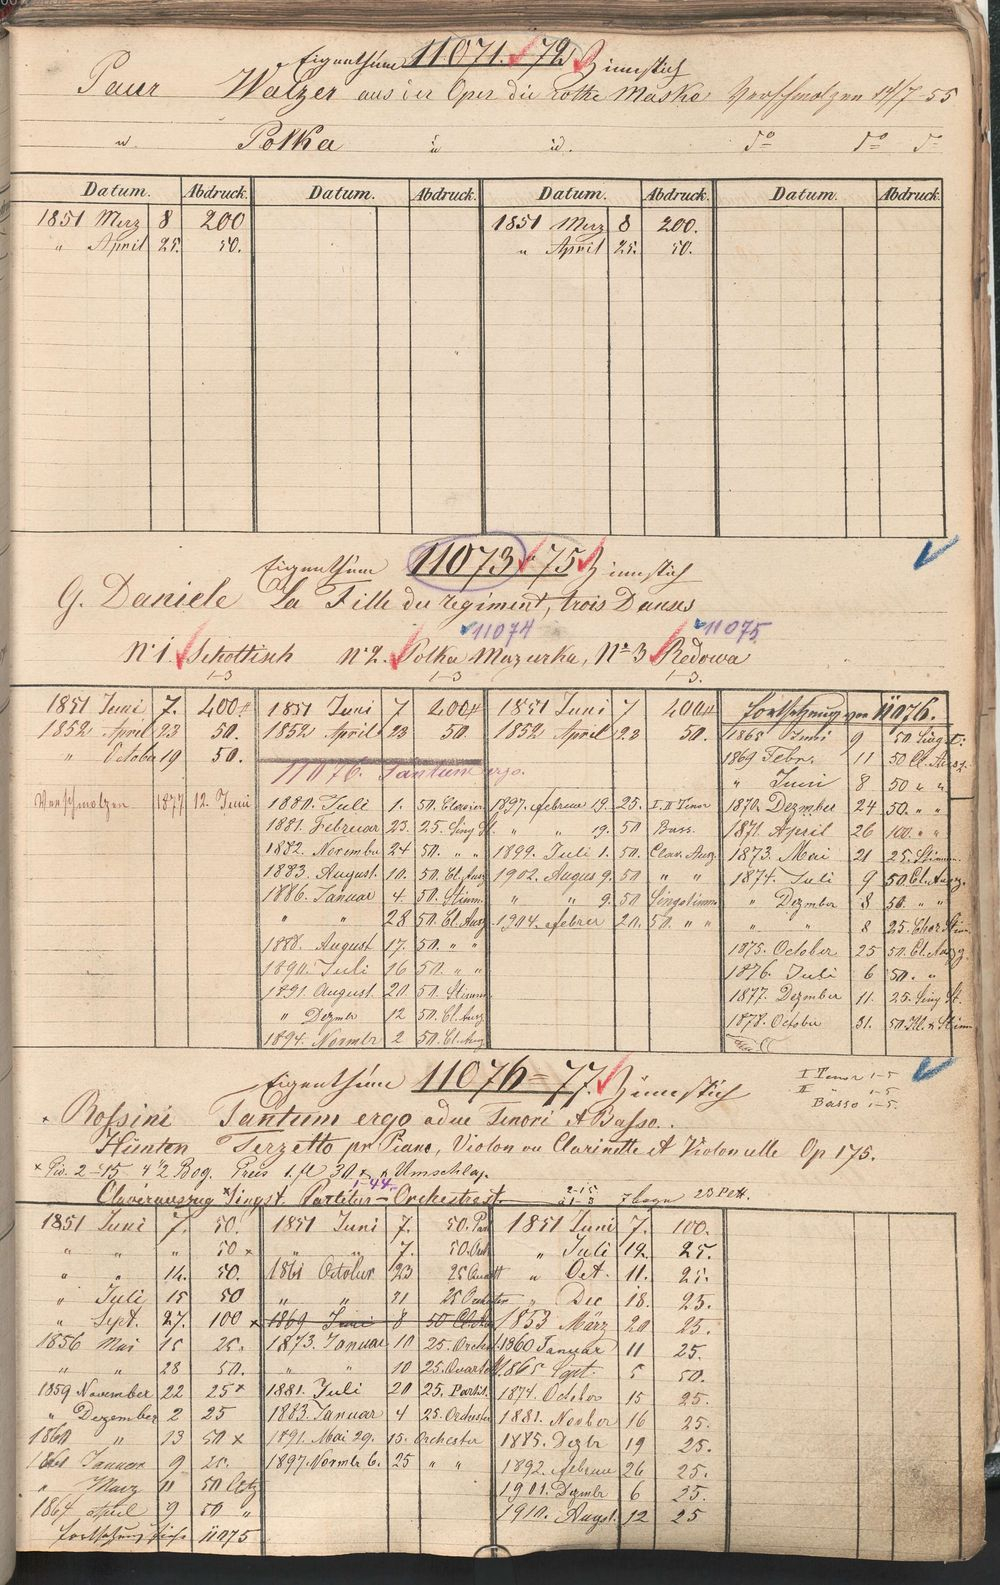 Eigenthum 11071. 72 Zinnstich
Paur Walzer aus der Oper die rothe Maske Verschmolzen 14/7 - 55
" Polka " id. do do do
Datum. Abdruck. Datum. Abdruck. Datum. Abdruck. Datum. Abdruck.
1851 Merz 8 200 1851 Merz 8 200.
" April 25. 50. " April 25. 50.
Eigenthum 11073 75 Zinnstich
G. Daniele La Fille du regiment, trois Danses
11074 11075
No 1. Schottisch No 2. Polka Mazurka, No 3 Redowa
1-3 1-3 1-3.
1851 Juni 7. 200 1851 Juni 7 200 1851 Juni 7 200 Fortsetzung von 11076.
1852 April 23 50. 1852 April 23 50. 1852 April 23 50. 1865 Juni 9 50 Singst.
" October 19 50. 1869 Febr. 11 50 Cl. Ausz.
11076. Tantum ergo. " Juni 8 50 " "
Verschmolzen 1877 12. Juni 1880. Juli 1. 50. Clavier 1897. Februar 19. 25. I. II Tenor 1870. Dezmber 24 50. " "
1881. Februar 23. 25. Sing St. " " 19. 50 Bass. 1871. April 26 100. " "
1882. Novembr 24 50. " " 1899. Juli 1. 50. Clav. Ausz 1873. Mai 21 25. Stimm.
1883. August. 10. 50. Cl. Ausz 1902. August 9. 50 " " 1874. Juli 9 50 Cl. Ausz.
1886. Januar 4. 50. Stimm. " " 9. 50 Singstimm " Dezmber 8 50. " "
" " 28 50. Cl. Ausz 1904. Febrer 20. 50. " " " " 8 25. Chor Stim
1888. August 17. 50. " " 1875. October 25 50. Cl. Ausz.
1890. Juli 16 50. " " 1876. Juli 6 50. "
1891. August. 20 50. Stimm. 1877. Dezmber 11. 25. Sing St.
" Dezmbr 12 50. Cl. Ausz 1878. October 31. 50
1894. Novmbr 2 50. Cl. Ausz
Eigenthum 11076 = 77. Zinnstich
I Tenor 1-5
II " 1-5
Basso 1-5.
Rossini Tantum ergo a due Tenori et Basso.
Hünten Terzetto pr Piano, Violon ou Clarinette et Violoncelle Op 175.
2-15 4 1/2 Bog. Preis 1. fl 30 x Umschlag.
1-44
Clavierauszug Singst. Partitur - Orchesterst. 2-15 7 bogn
1851 Juni 7. 50. 1851 Juni 7. 50. Part 1851 Juni 7. 100.
" " " 50 x " " 7. 50. Orch " Juli 12. 25.
" " 14. 50. 1861 October 23 25 Quart " Oct. 11. 25.
" Juli 15 50 " " 21 25 Orchester " Dec 18. 25.
" Sept. 27. 100 x 1869 Juni 8 50 1853 März 20 25.
1856 Mai 15 25. 1873. Januar 10 25. Orchest. 1860 Januar 11 25.
" " 28 50. " " 10 25. Quartett 1865 Sept. 5 50.
1859 November 22 25 x 1881. Juli 20 25. Partit. 1874. October 15 25.
" Dezember 2 25 1883. Januar 4 25. Orchester 1881. Novber 16 25.
1860 " 13 50 x 1891. Mai 29. 15. Orchester 1885. Dezbr 19 25.
1861 Januar 9 25. 1897. Novmbr 6. 25 " " 1892. Februar 26 25.
" Marz 11 50 1901. Dezmbr 6 25.
1864 April 9 50 " 1910. Augst. 12 25
Fortsetzung siehe 11075